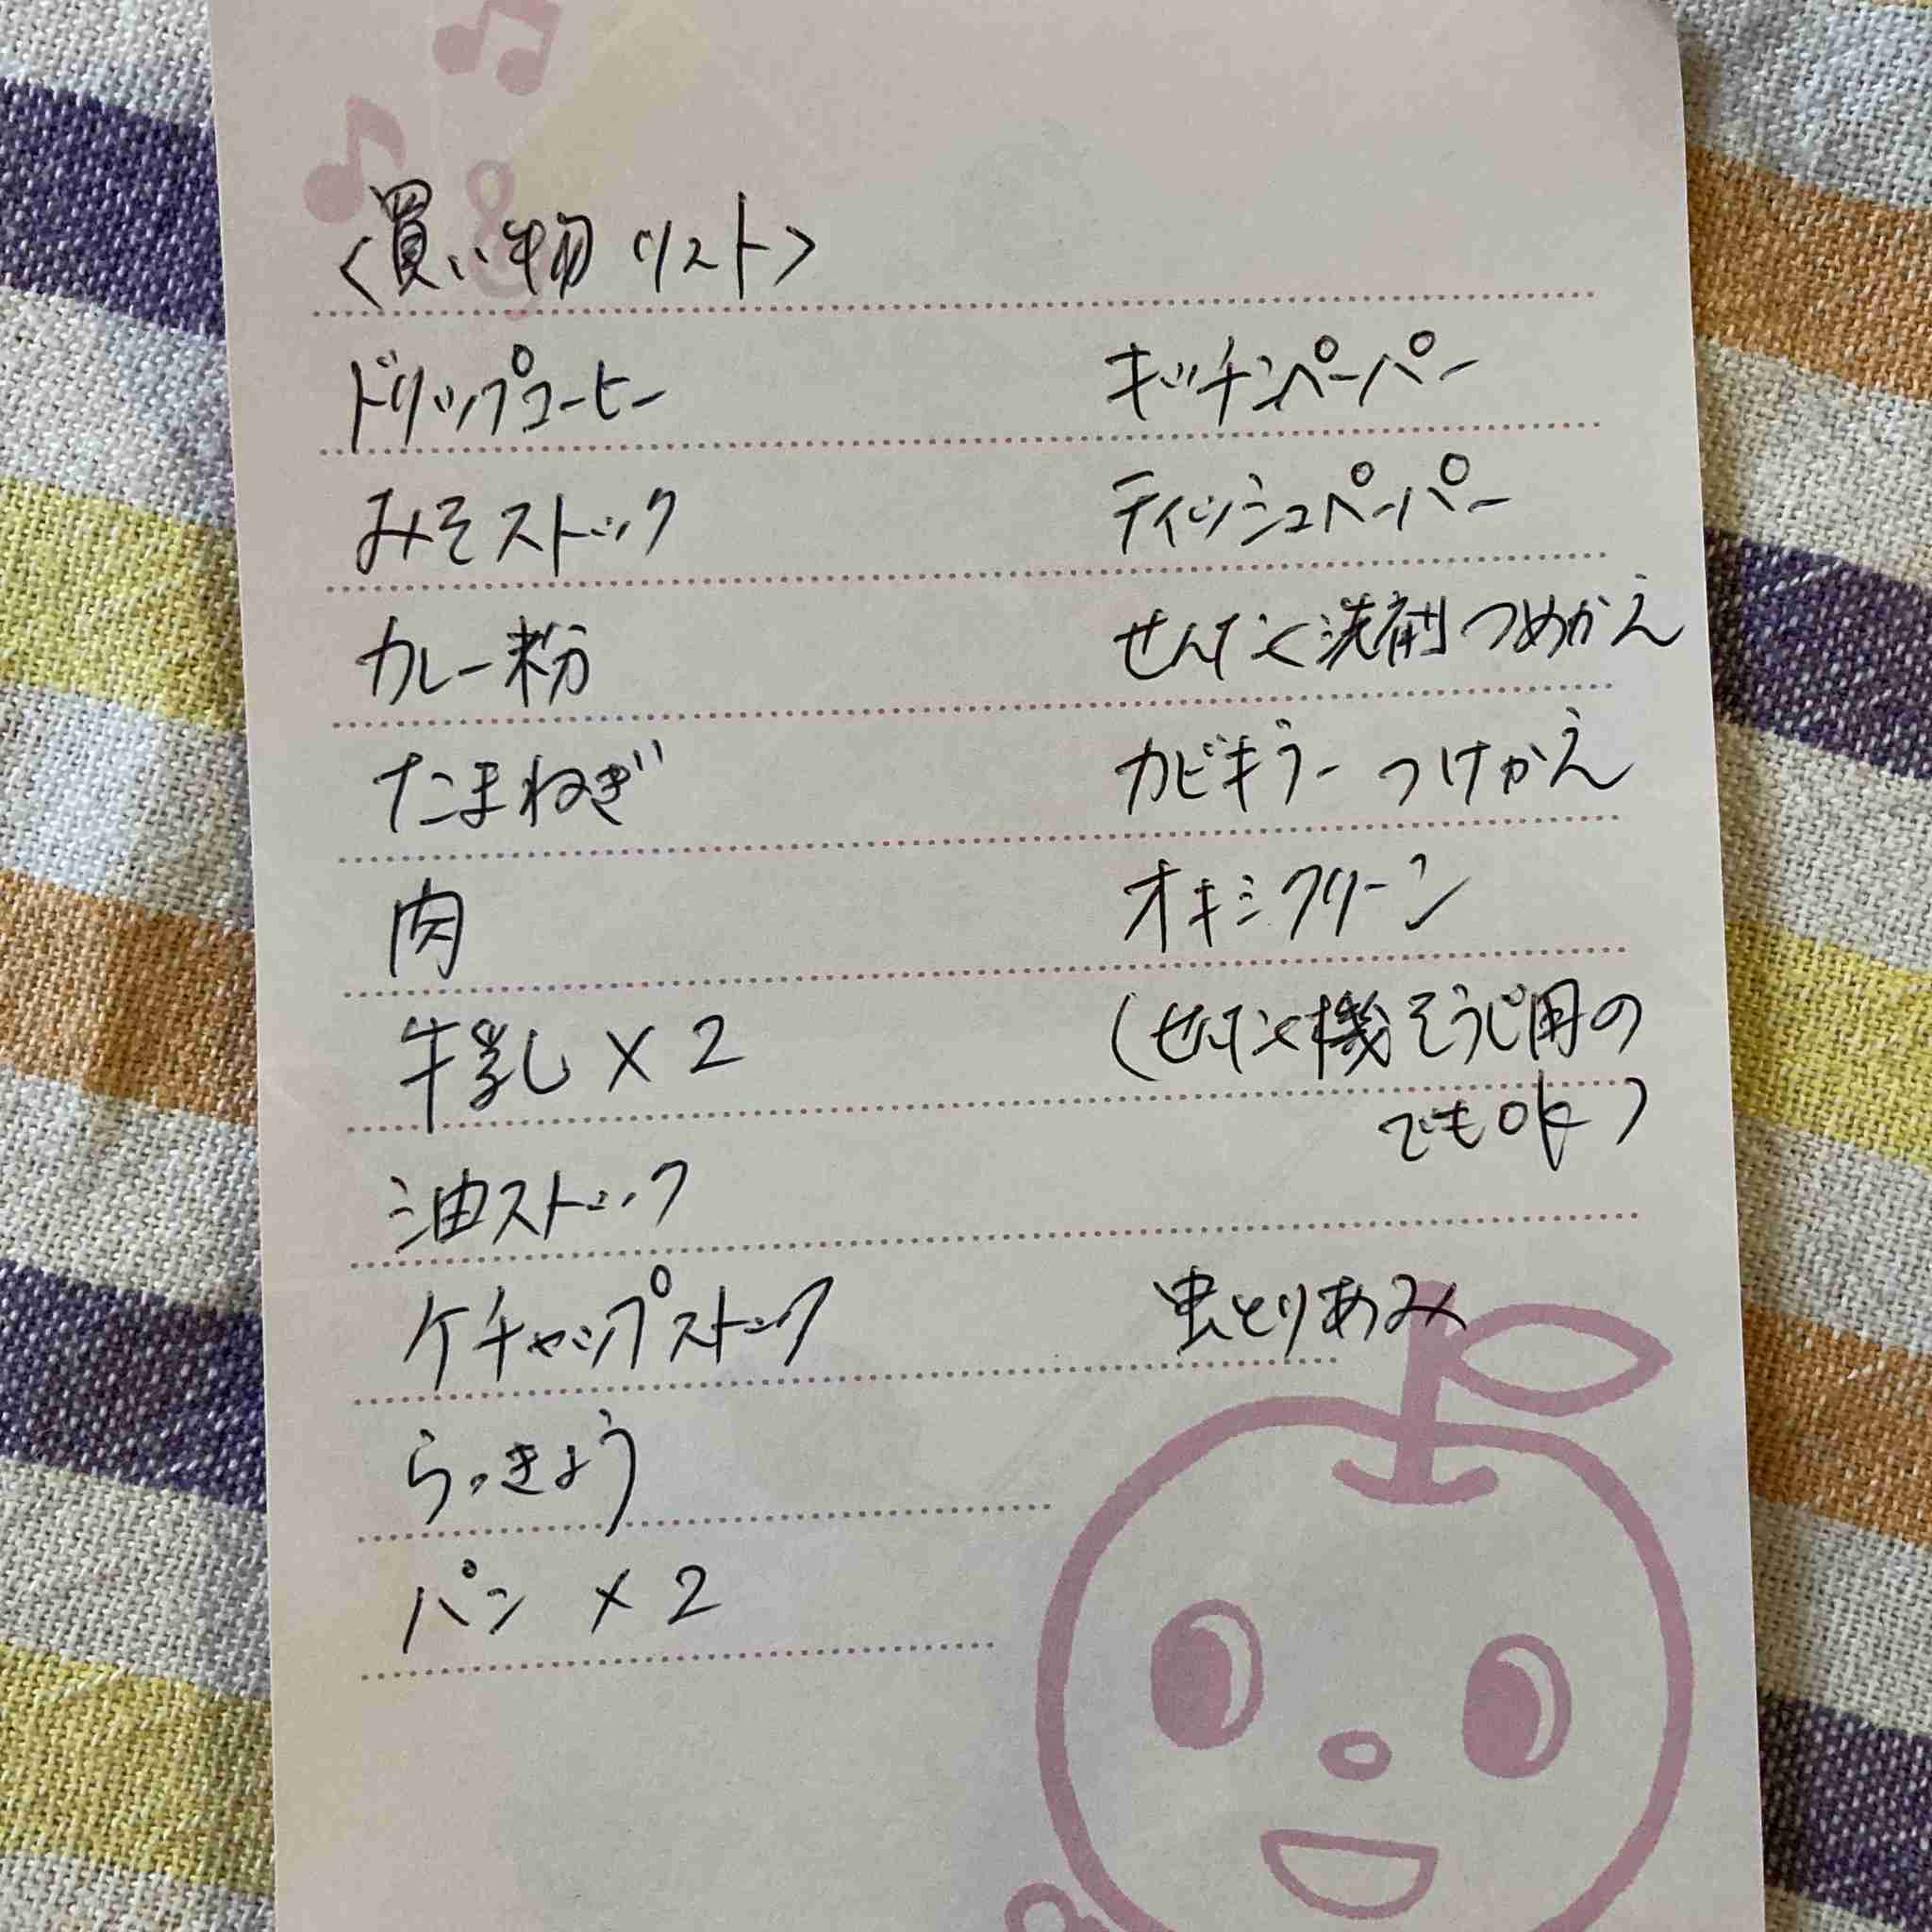 <買い物リスト>
ドリップコーヒー
みそストック
カレー粉
たまねぎ
肉
牛乳×2
油ストック
ケチャップストック
らっきょう
パン ×2
キッチンペーパー
ティッシュペーパー
せんたく洗剤つめかえ
カビキラー つけかえ
オキシクリーン
(せんたく機そうじ用の
でもOK)
虫とりあみ